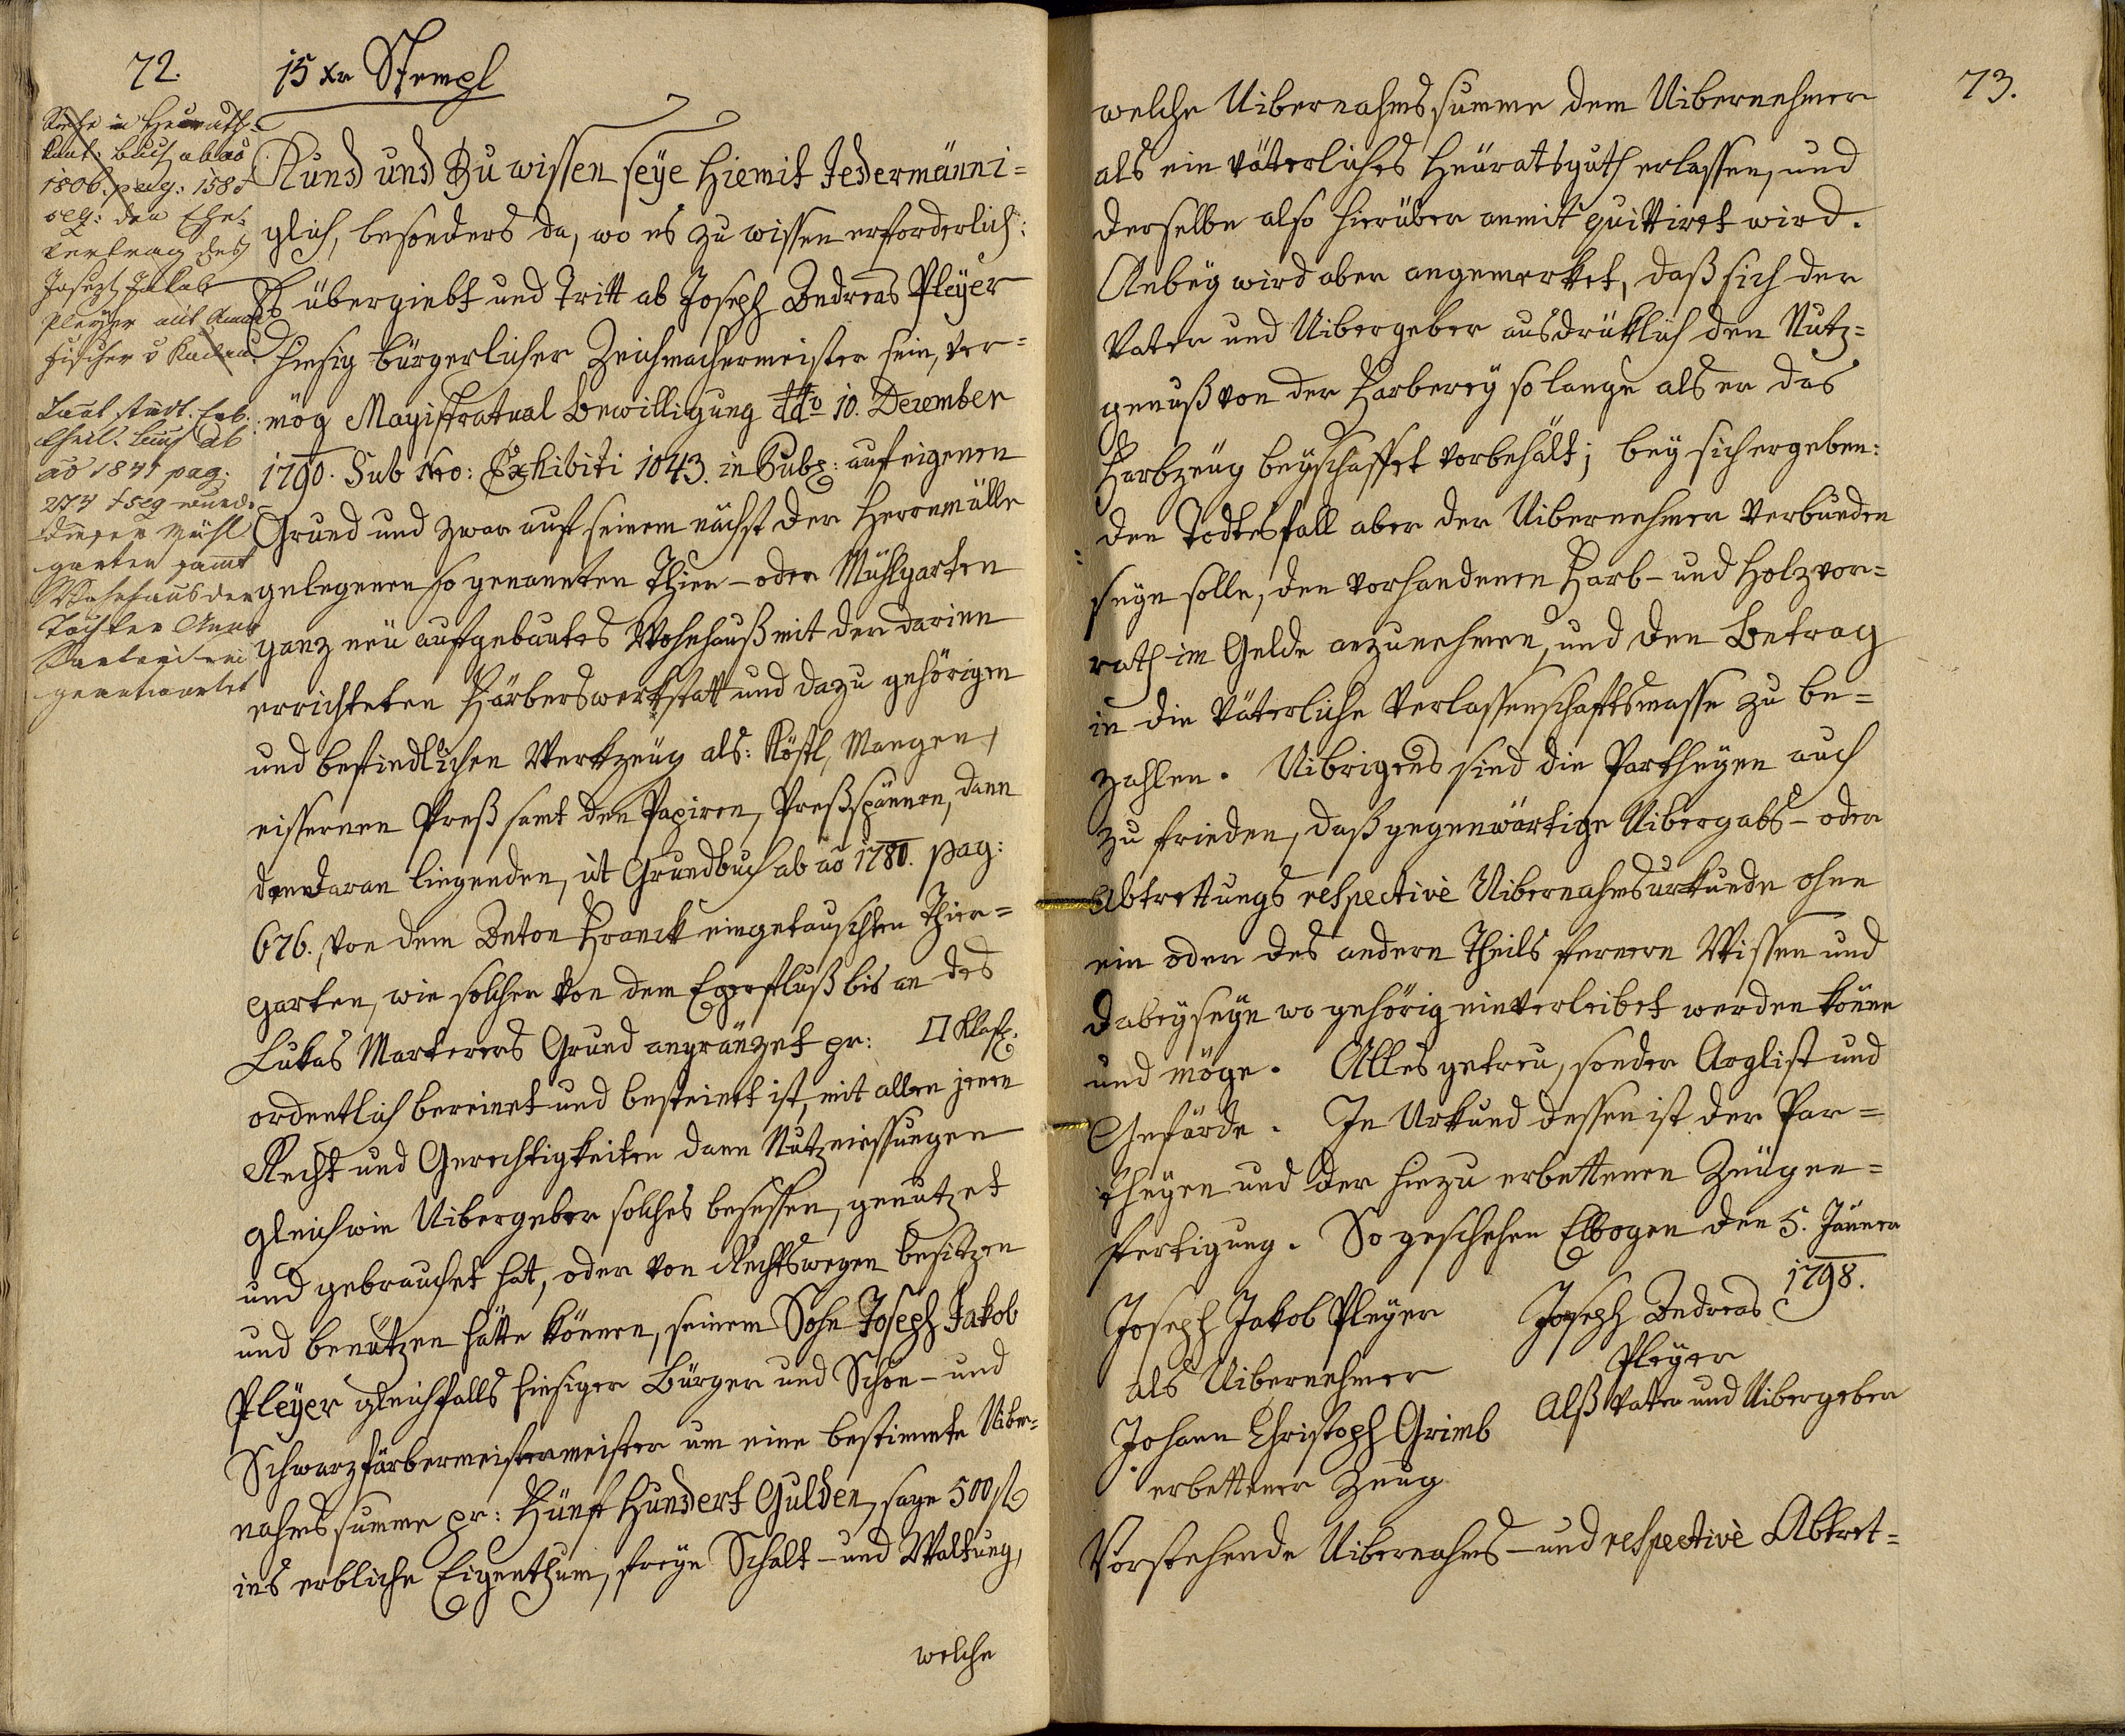 72.
15 xr Stempl
Siehe in Heurath=
kont: buch ab aõ
1806. pag: 158 &
seq: den Ehe=
vertrag des
Joseph Jakob
Pleyer mit Anna
Fischer v
Laut städt. Erb.
theil. buch ab
aõ 1841 pag.
274 & seq wurde
dieser Mühl
garten samt
Wohnhaus der
Tochter Anna
geantwortet
Kund und Zu wissen seÿe hiemit Jedermänni=
glich, besonders da, wo es zu wissen erforderlich:
Es übergiebt und Tritt ab Joseph Andreas Pleÿer
hiesig bürgerlicher Zeichmachermeister sein, ver=
mög Magistratual Bewilligung ddto 10. December
1790. Sub Nro: Exhibiti 1043. in Hubp: auf eigenen
Grund und zwar auf seinem nächst der Herrnmülle
gelegenen so genannten Thier- oder Mühlgarten
ganz neü aufgebautes Wohnhauß mit der darinn
errichteten Färberswerkstatt und dazu gehörigen
und befindlichen Werkzeüg als: Köstl, Mangen,
eissernen Preß samt den Papiren, Preßspännen, dann
den daran liegenden, ut Grundbuch ab aõ 1780. pag:
676. von dem Anton Franck eingetauschten Thier=
garten, wie solcher von dem Egerfluß bis an des
Lukas Marterers Grund angränzet pr: □ Klaft:
ordentlich bereinet und besteinet ist, mit allen jenen
Recht und Gerechtigkeiten dann Nutzniessungen
gleich wie Uibergeber solches besessen, genutzet
und gebrauchet hat, oder von Rechtswegen besitzen
und benützen hätte können, seinem Sohn Joseph Jakob
Pleÿer gleichfalls hiesiger Bürger und Schön- und
Schwarzfärbermeistermeister um eine bestimmte Uiber=
nahmssumme pr: Fünf Hundert Gulden, sage 500 fl
ins erbliche Eigenthum, freye Schalt- und Waltung,
welche
73.
welche Uibernahmssumme dem Uibernehmer
als ein väterliches Heüratsguth erlassen, und
derselbe also hierüber anmit quittiret wird.
Anbeÿ wird aber angemerket, daß sich der
Vater und Uibergeber ausdrüklich den Nutz=
genuß von der Farbereÿ so lange als er das
Farbzeüg beÿschaffet vorbehält; beÿ sich ergeben:
den Todtesfall aber der Uibernehmer verbunden
seyn solle, den vorhandenen Farb- und Holzvor=
rath im Gelde anzunehmen, und den Betrag
in die väterliche Verlassenschaftsmasse zu be=
zahlen. Uibrigens sind die Partheyen auch
zu frieden, daß gegenwärtige Uibergabs- oder
Abtrettungs respectivè Uibernahmsurkunde ohne
ein oder des andern Theils fernern Wissen und
dabeÿseÿn wo gehörig einverleibet werden könne
und möge. Alles getreu, sonder Arglist und
Gefärde. In Urkund dessen ist der Par=
theyen und der hiezu erbettenen Zeügen=
fertigung. So geschehen Elbogen den 5. Jänner
1798.
Joseph Jakob Pleÿer
als Uibernehmer
Joseph Andreas
Pleÿer
Alß Vater und Uibergeber
Johann Christoph Grimb
erbettener Zeug
Vorstehende Uibernahms- und respectivè Abtret=